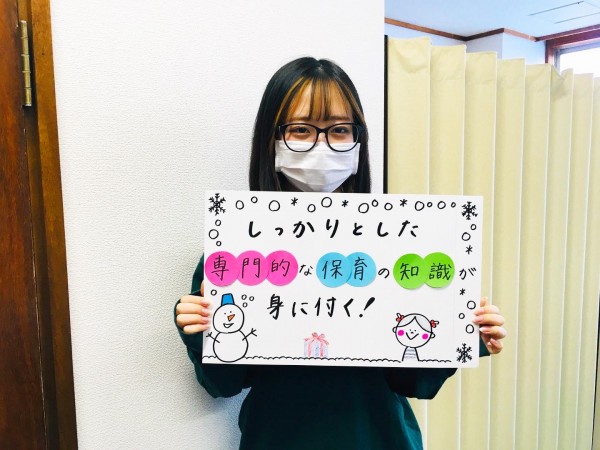 しっかりとした
専門的な保育の知識が
身に付く!